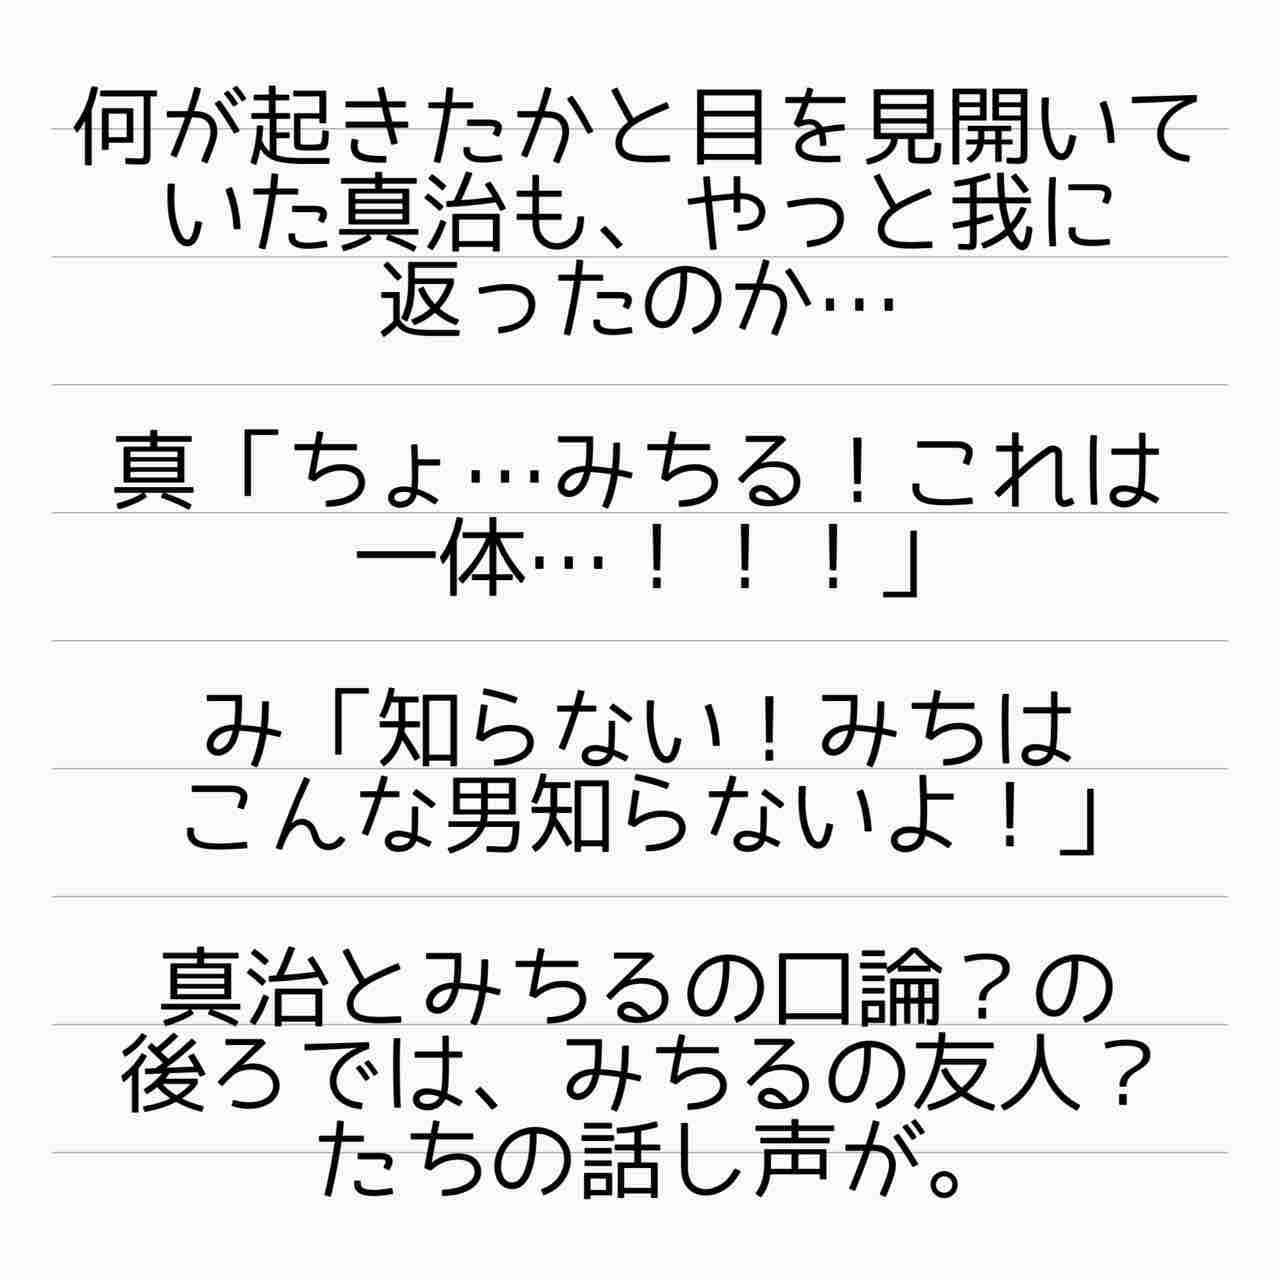 何が起きたかと目を見開いて
いた真治も、やっと我に
返ったのか…
真「ちょ…みちる！これは
一体…！！！」
み「知らない！みちは
こんな男知らないよ！」
真治とみちるの口論？の
後ろでは、みちるの友人？
たちの話し声が。